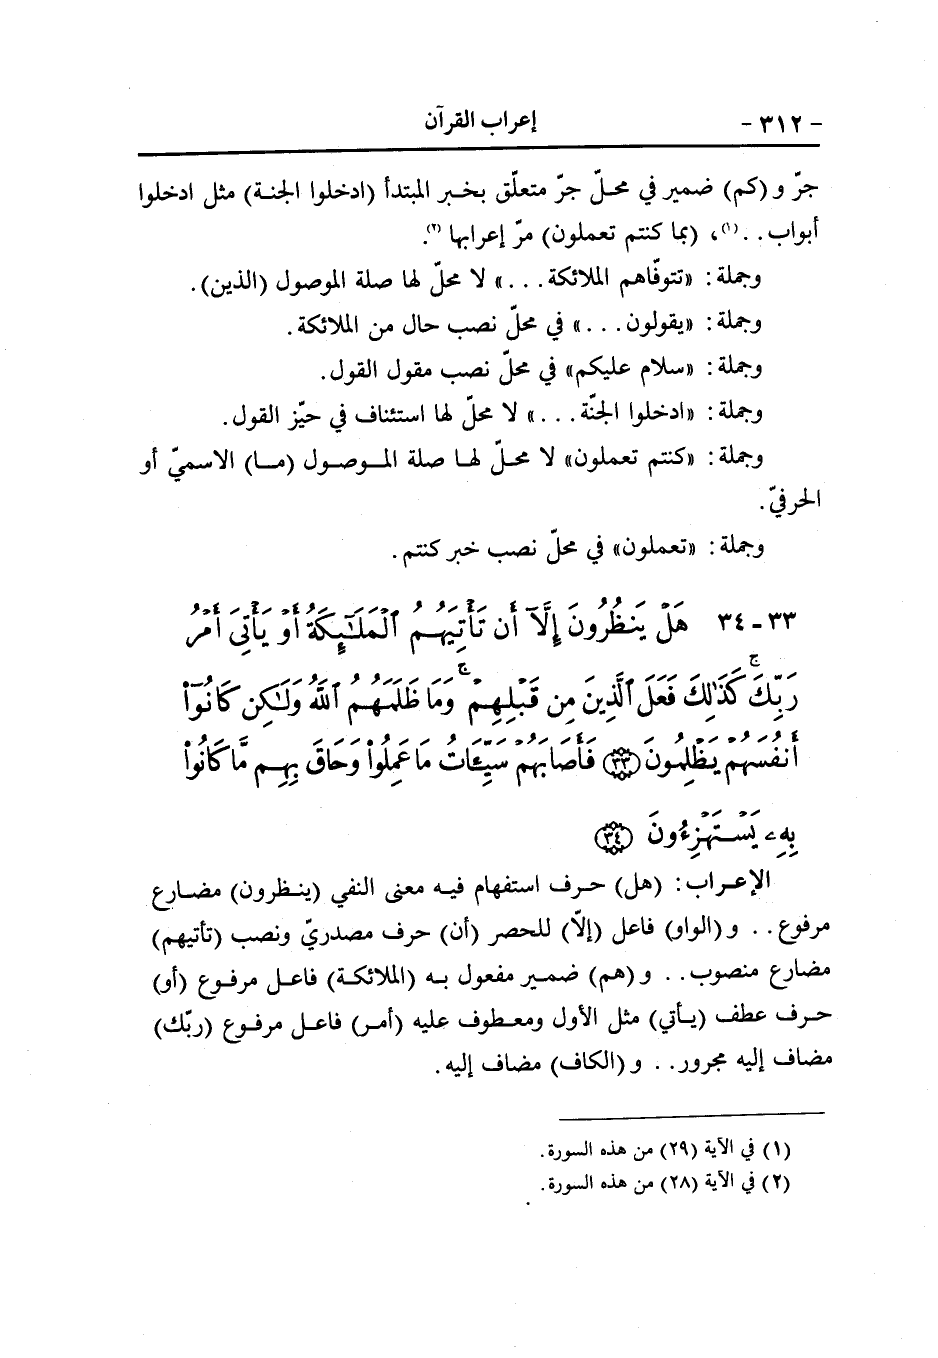 - ٣١٢ -
إعراب القرآن
جرّ و (كم) ضمير في محلّ جرّ متعلّق بخبر المبتدأ (ادخلوا الجنة) مثل ادخلوا
أبواب. . (١)، (بما كنتم تعملون) مرّ إعرابها (٢).
وجملة: «تتوفّاهم الملائكة. . .» لا محلّ لها صلة الموصول (الذين).
وجملة: «يقولون. . .» في محلّ نصب حال من الملائكة.
وجملة: «سلام عليكم» في محلّ نصب مقول القول.
وجملة: «ادخلوا الجنّة. . .» لا محلّ لها استئناف في حيّز القول.
وجملة: «كنتم تعملون» لا محلّ لها صلة الموصول (ما) الاسميّ أو
الحرفيّ.
وجملة: «تعملون» في محلّ نصب خبر كنتم.
٣٣ - ٣٤ هَلْ يَنظُرُونَ إِلَّآ أَن تَأْتِيَهُمُ ٱلْمَلَٰٓئِكَةُ أَوْ يَأْتِىَ أَمْرُ
رَبِّكَ ۚ كَذَٰلِكَ فَعَلَ ٱلَّذِينَ مِن قَبْلِهِمْ ۚ وَمَا ظَلَمَهُمُ ٱللَّهُ وَلَٰكِن كَانُوٓا۟
أَنفُسَهُمْ يَظْلِمُونَ ﴿٣٣﴾ فَأَصَابَهُمْ سَيِّـَٔاتُ مَا عَمِلُوا۟ وَحَاقَ بِهِم مَّا كَانُوا۟
بِهِۦ يَسْتَهْزِءُونَ ﴿٣٤﴾
الإعراب: (هل) حرف استفهام فيه معنى النفي (ينظرون) مضارع
مرفوع. . و (الواو) فاعل (إلّا) للحصر (أن) حرف مصدريّ ونصب (تأتيهم)
مضارع منصوب. . و (هم) ضمير مفعول به (الملائكة) فاعل مرفوع (أو)
حرف عطف (يأتي) مثل الأول ومعطوف عليه (أمر) فاعل مرفوع (ربّك)
مضاف إليه مجرور. . و (الكاف) مضاف إليه.
(١) في الآية (٢٩) من هذه السورة.
(٢) في الآية (٢٨) من هذه السورة.